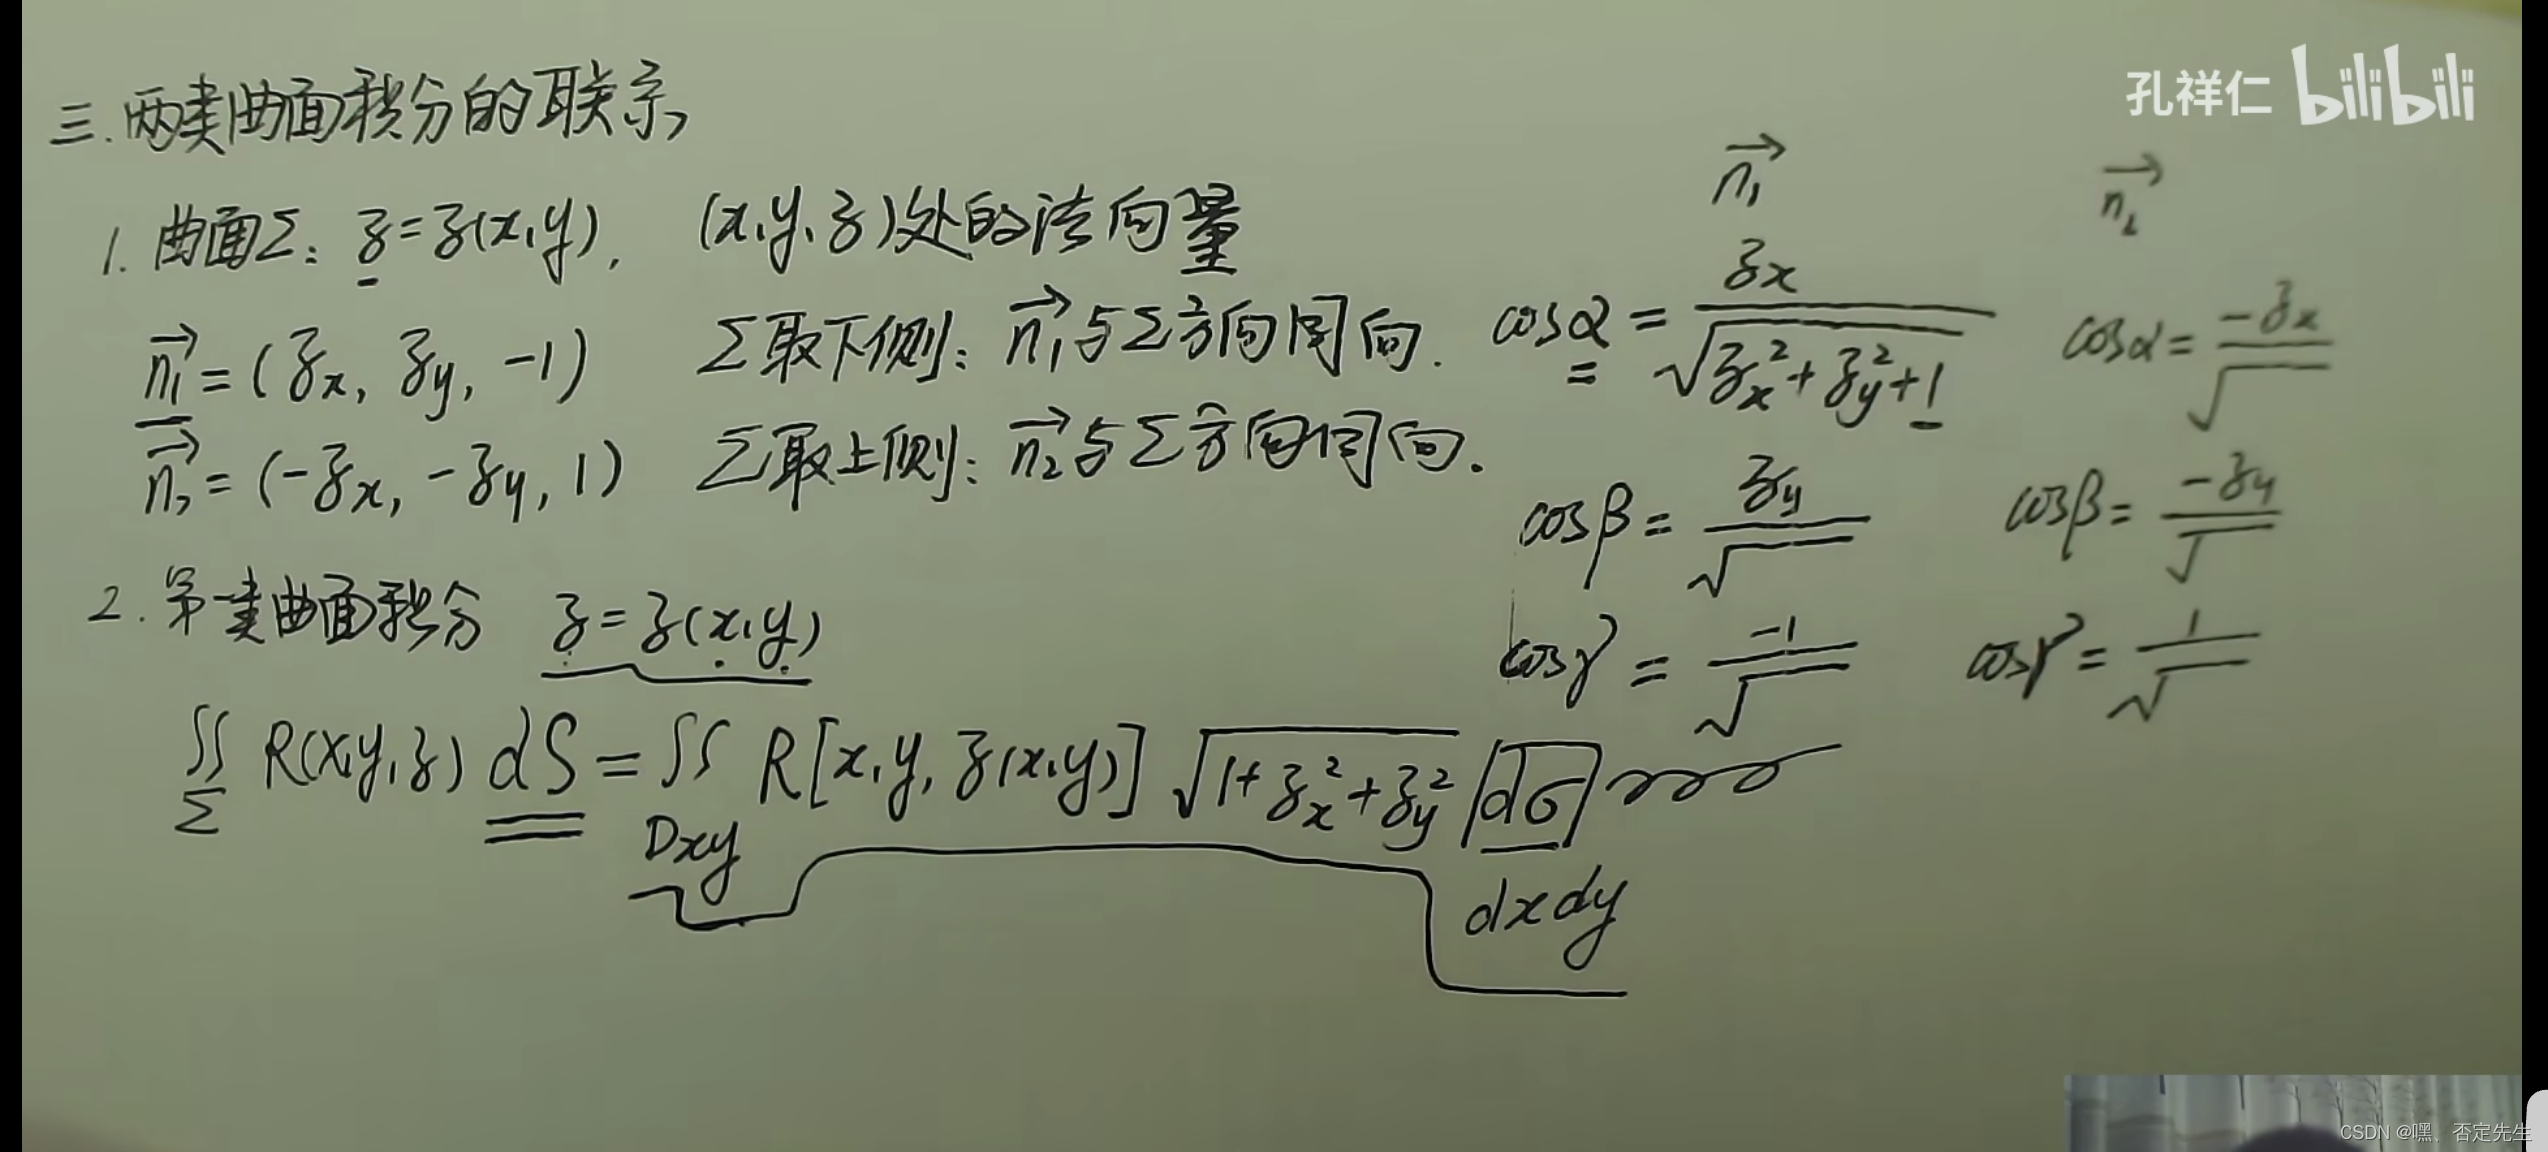 孔祥仁 bilibili
三.两类曲面积分的联系
1. 曲面Σ: z=z(x,y), (x,y,z)处的法向量
n₁→=(zx, zy, -1) Σ取下侧: n₁→与Σ方向同向.
n₂→=(-zx, -zy, 1) Σ取上侧: n₂→与Σ方向同向.
n₁→
cosα = zx/√(zx²+zy²+1)
cosβ = zy/√
cosγ = -1/√
n₂→
cosα = -zx/√
cosβ = -zy/√
cosγ = 1/√
2. 第一类曲面积分 z=z(x,y)
∬Σ R(x,y,z) dS = ∬Dxy R[x,y,z(x,y)] √(1+zx²+zy²) dσ
dxdy
CSDN @嘿、否定先生